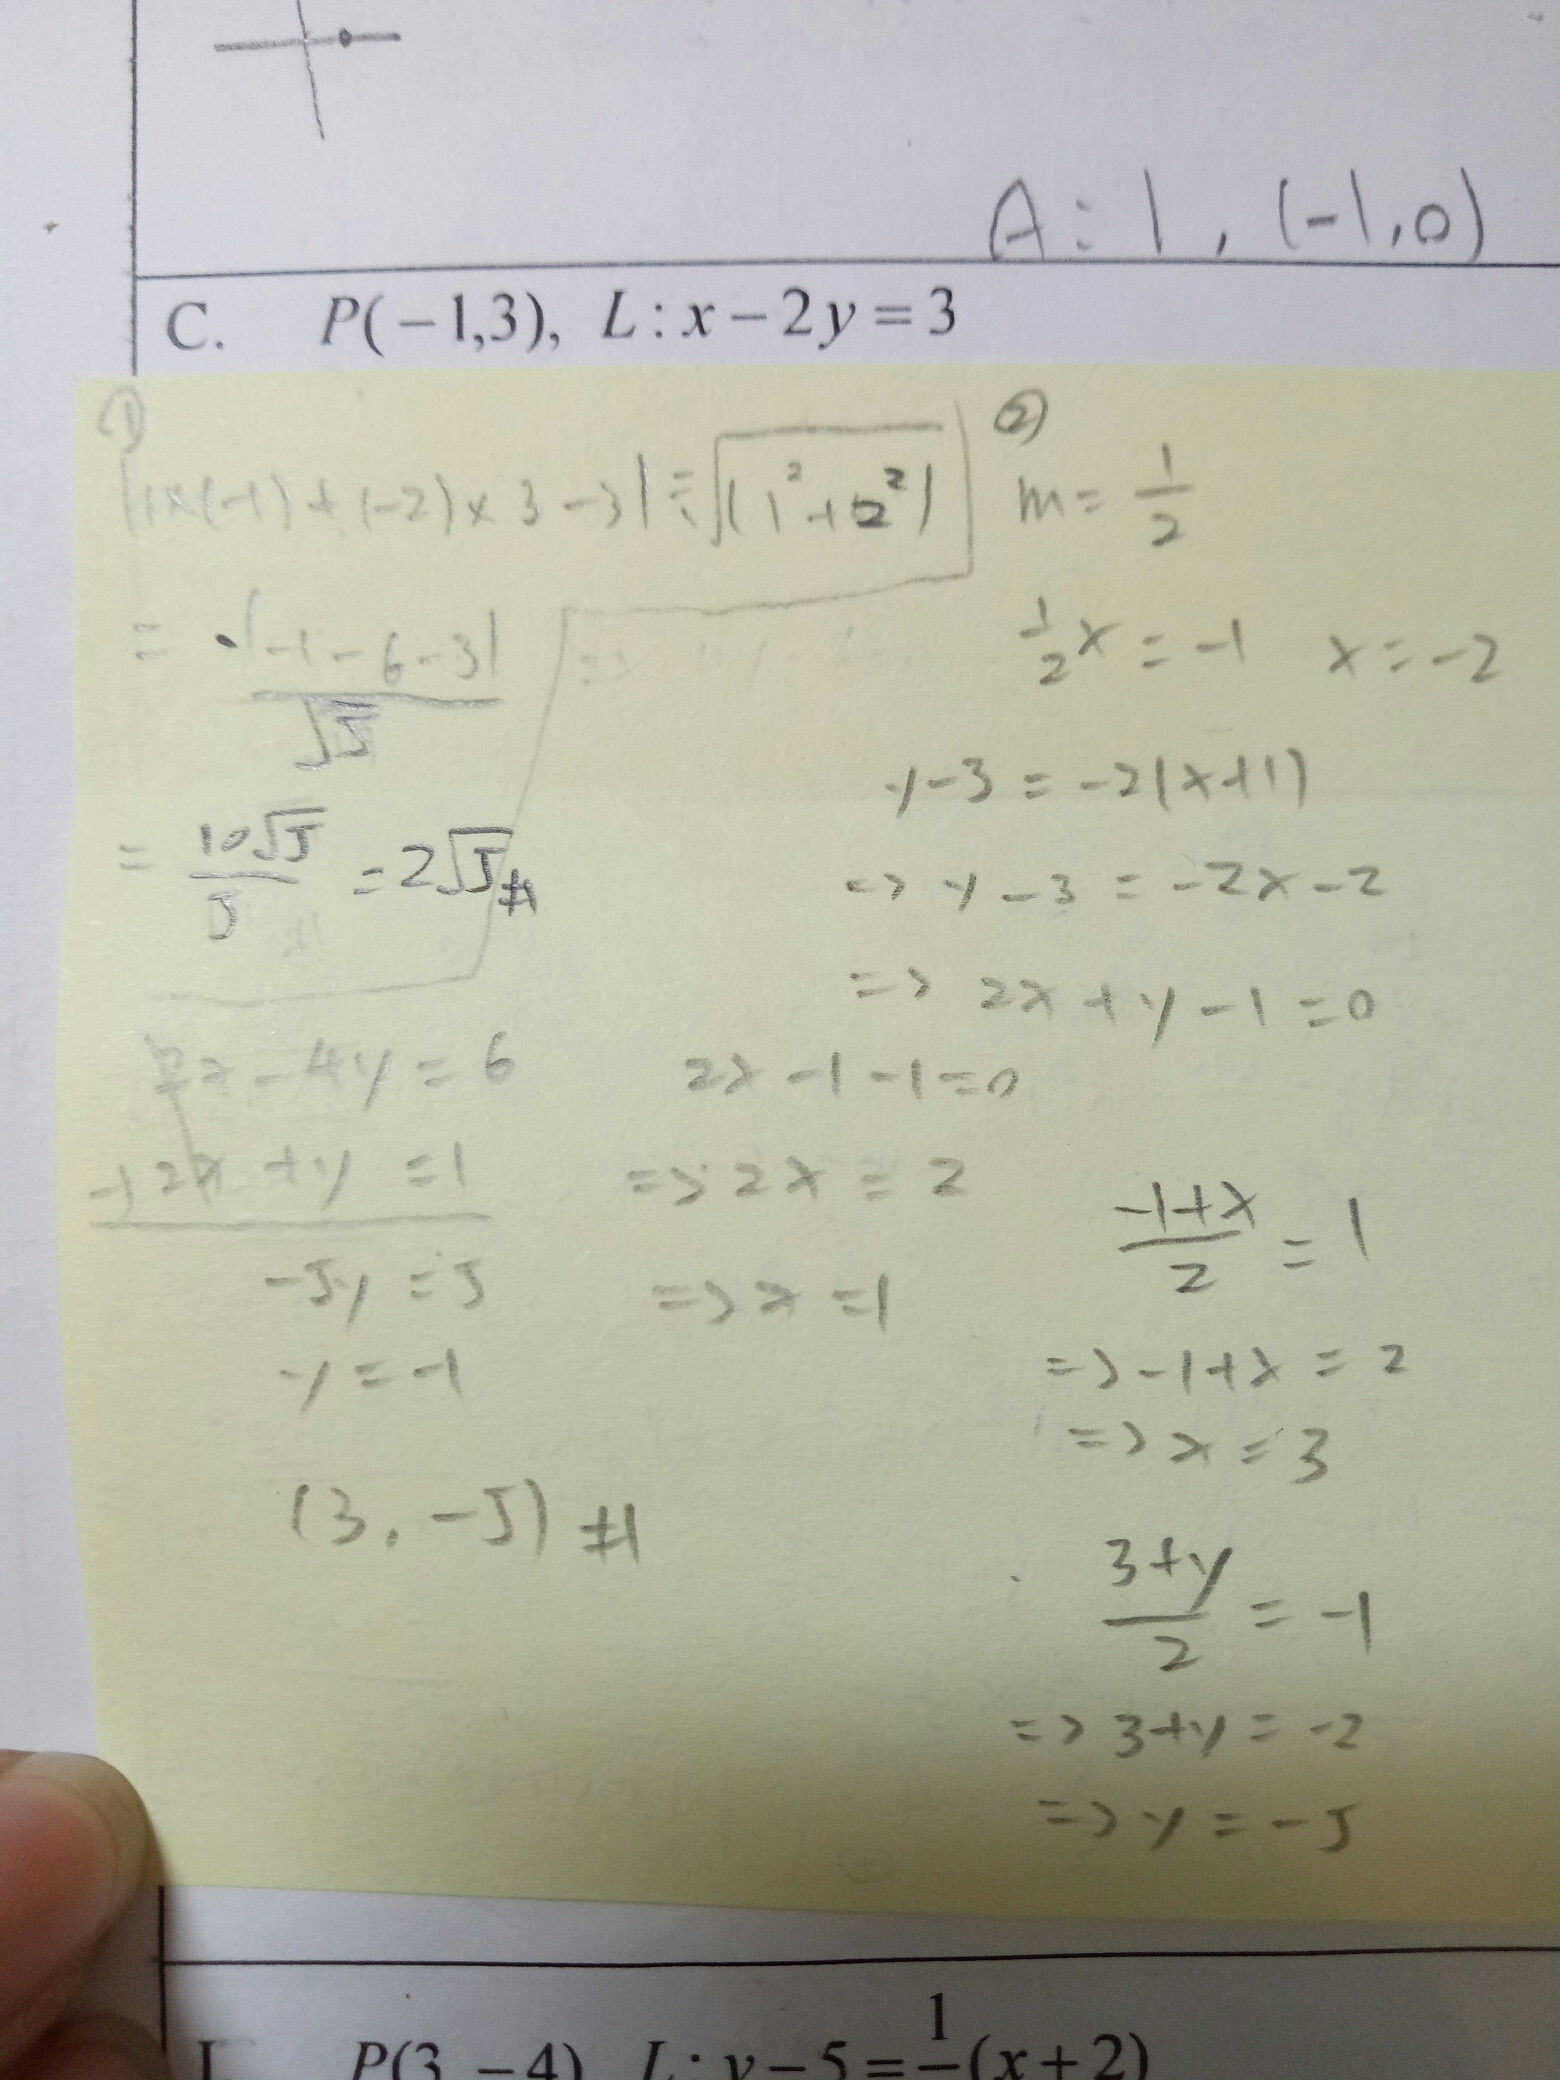 A : 1 , (-1,0)
C. P(-1,3), L:x-2y=3
①
|1×(-1)+(-2)×3-3|÷√(1²+2²)
= |-1-6-3|/√5
= 10√5/5 = 2√5 #
②
m= 1/2
1/2 x = -1 x = -2
y-3 = -2(x+1)
=> y-3 = -2x-2
=> 2x+y-1=0
2x-4y=6
-) 2x+y=1
-5y=5
y=-1
2x-1-1=0
=> 2x=2
=> x=1
(-1+x)/2 = 1
=> -1+x=2
=> x=3
(3+y)/2 = -1
=> 3+y=-2
=> y=-5
(3,-5) #
P(3,-4) L: y-5=1/-(x+2)